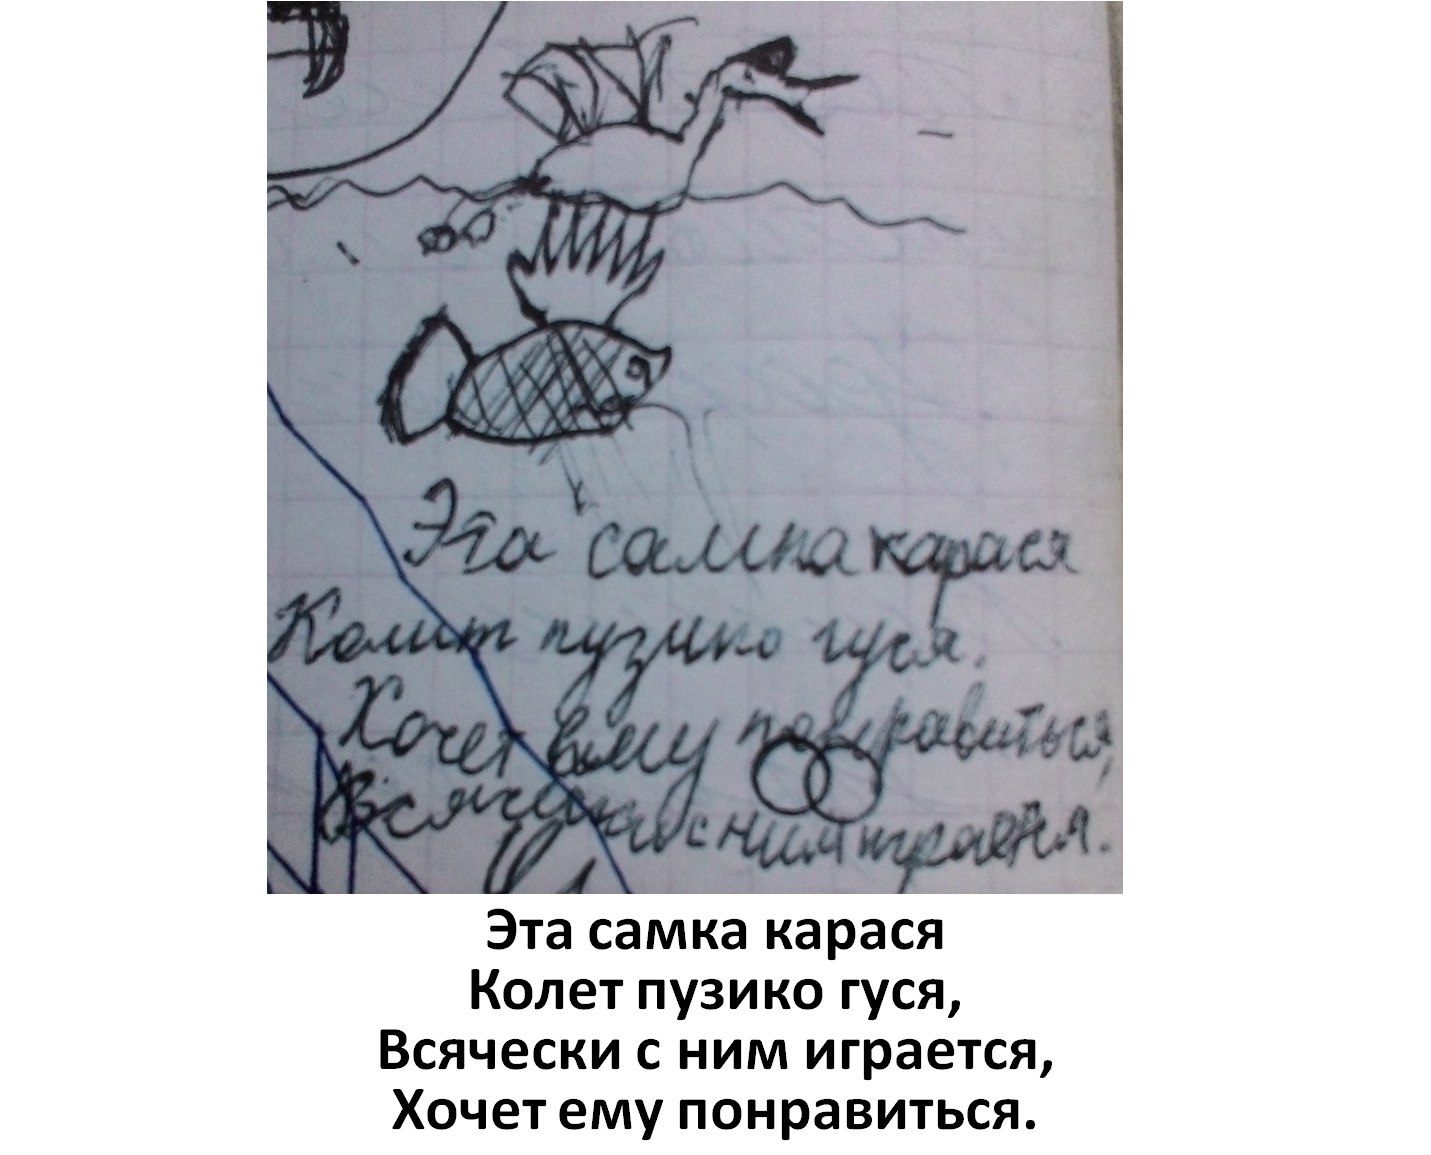 Эта самка карася
Колит пузико гуся.
Хочет ему понравиться,
Всячески с ним играется.
Эта самка карася
Колет пузико гуся,
Всячески с ним играется,
Хочет ему понравиться.